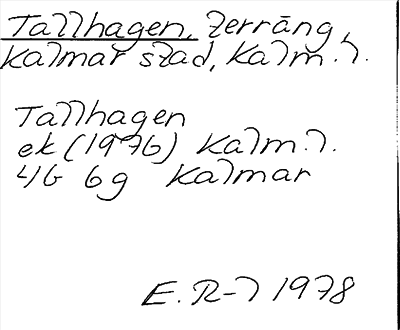 Tallhagen, terräng,
Kalmar stad, Kalm. l.
Tallhagen
ek (1976) Kalm. l.
4G 6g Kalmar
E. R-l 1978